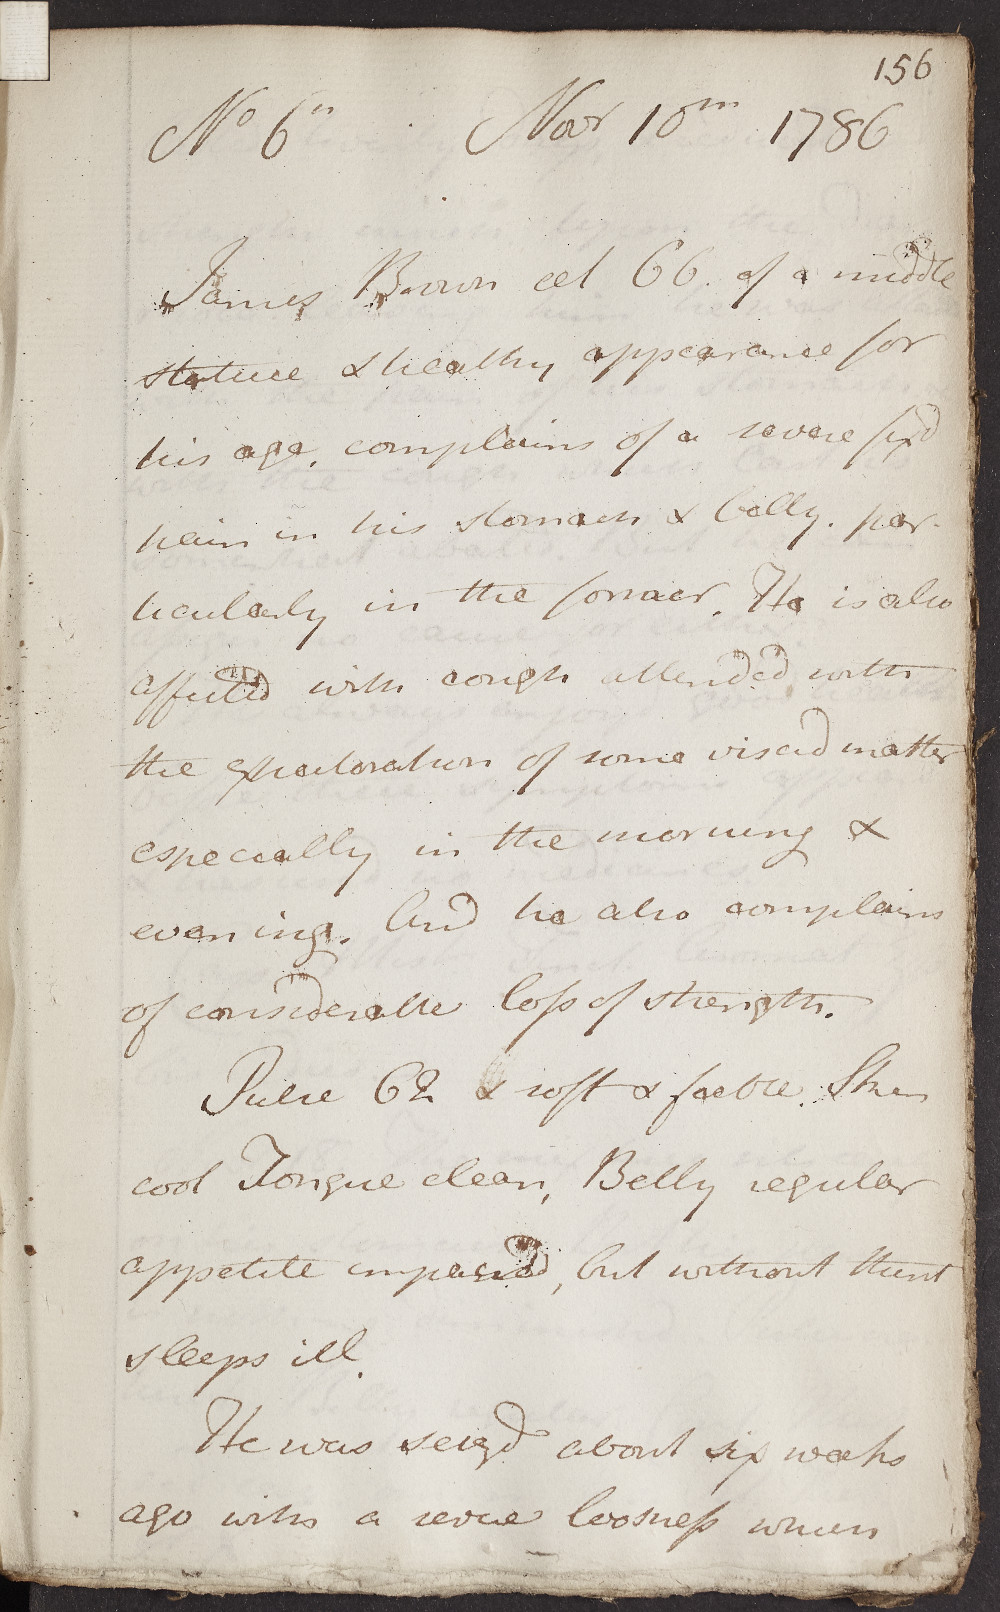 156
No 6th Novr 10th 1786
James Brown aet 66. of a middle
stature & healthy appearance for
his age, complains of a severe fixd
pain in his stomach & belly. par-
ticularly in the former. He is also
affected with cough attended with
the expectoration of some viscid matter
especially in the morning &
evening. And he also complains
of considerable loss of strength.
Pulse 62 & soft & feeble. Skin
cool Tongue clean, Belly regular
appetite impaired, but without thirst
sleeps ill.
He was seizd about six weeks
ago with a severe looseness which